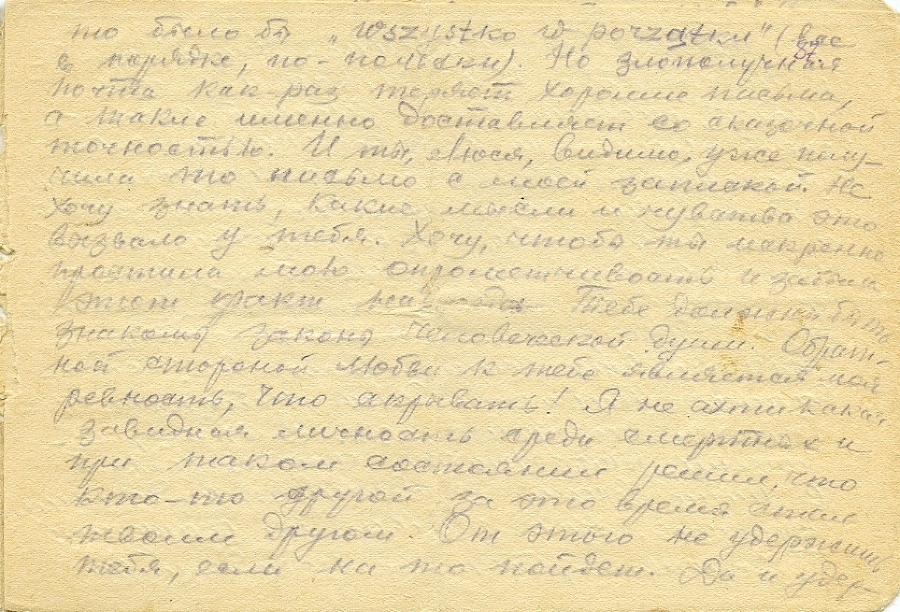 то было бы „Wszystko w porządku“ (все
в порядке, по-польски). Но злополучная
почта как раз теряет хорошие письма,
а такие именно доставляет со сказочной
точностью. И ты, Люся, видимо, уже полу-
чила то письмо с моей запиской. Не
хочу знать, какие мысли и чувства это
вызвало у тебя. Хочу, чтобы ты искренно
простила мою опрометчивость и забыла
этот факт навсегда. Тебе должны быть
знакомы законы человеческой души. Обрат-
ной стороной любви к тебе является моя
ревность, что скрывать! Я не ахти какая
завидная личность среди смертных и
при таком состоянии решил, что
кто-то другой за это время стал
твоим другом. От этого не удержишь
тебя, если на то пойдет. Да и удер-